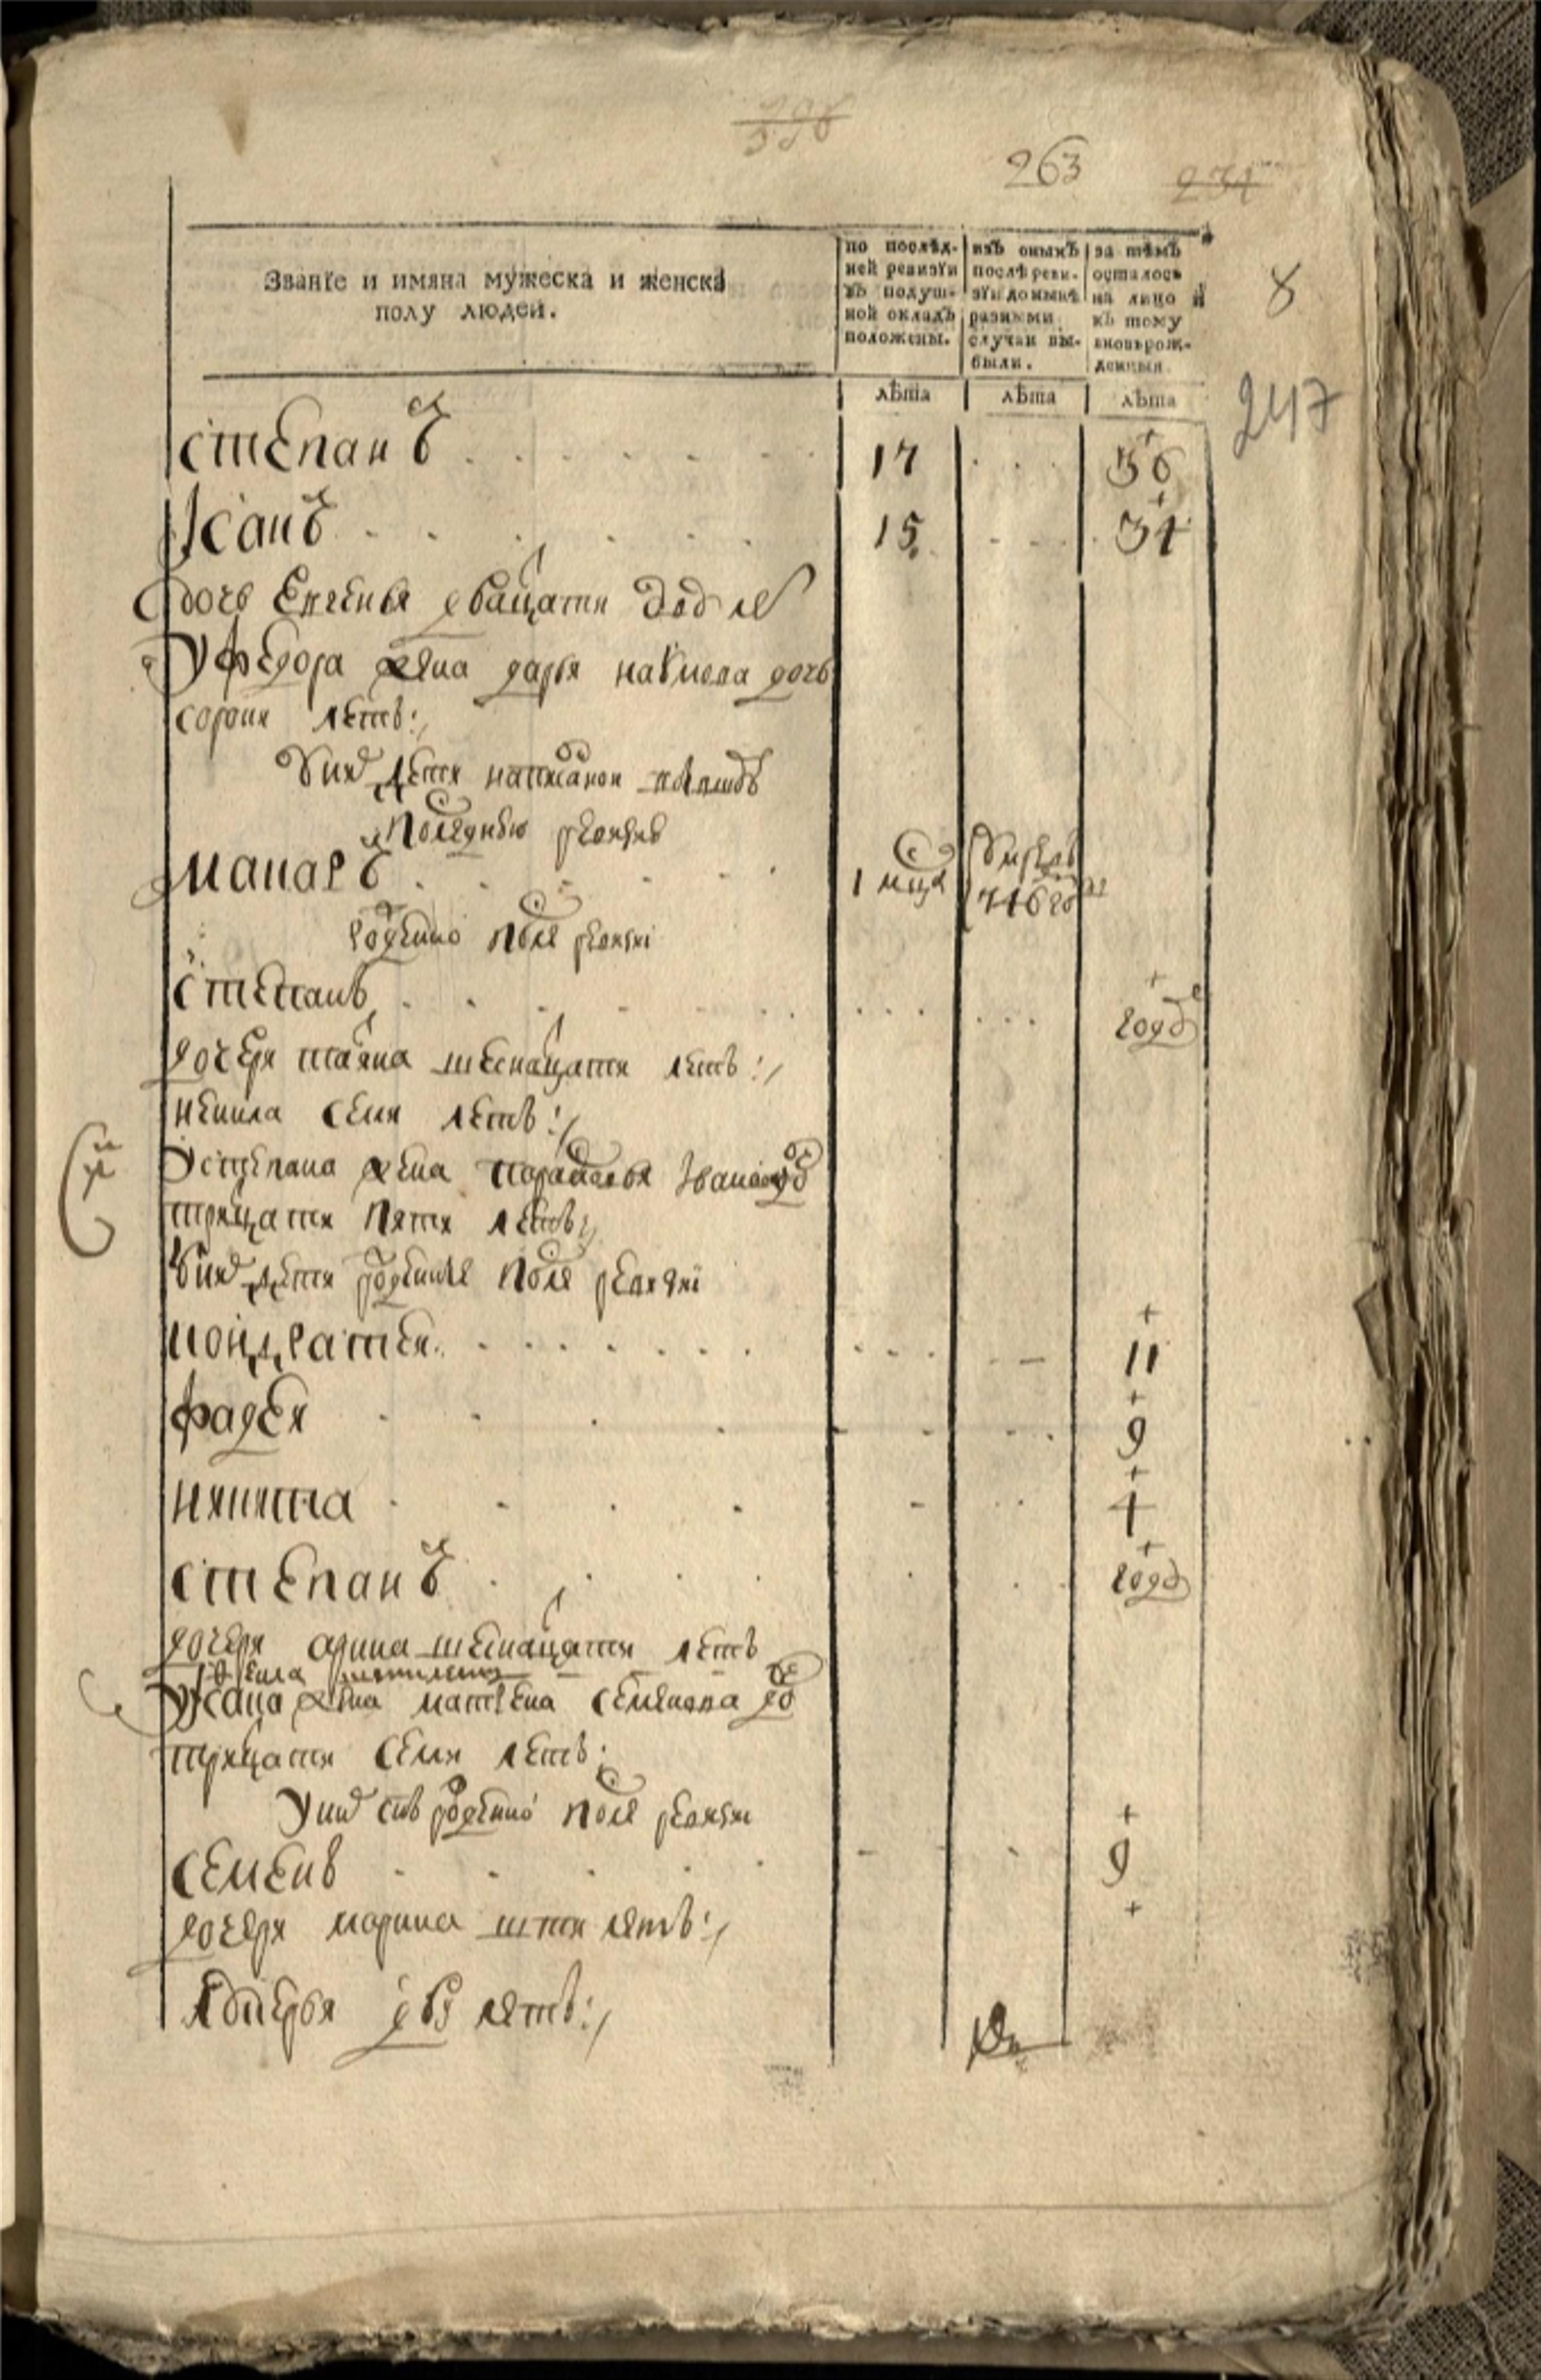 263
Званїе и имяна мужеска и женска
полу людей.
по послѣд-
ней ревизїи
въ подуш-
ной окладъ
положены.
изъ оныхъ
послѣ реви-
зїи до нынѣ
разными
случаи вы-
были.
за тѣмъ
осталось
на лицо и
къ тому
вновърож-
денныя
8
лѣта лѣта лѣта
247
степанъ 17 36
Исаиъ 15 34
дочь евгенья дватцати
у федора жена дарья дочь
сорока летъ
у них дети написанои
последнею ревизию
макаръ 1 умре въ
746 году
рожденои после ревизиї
степанъ годъ
дочери татяна шеснатцати летъ
ненила семи летъ
у степана жена парасковья Ивановa дочь
тритцати пяти летъ
у них дети рожденые после ревизиї
кондратеи 11
фадеи 9
никита 4
степанъ годъ
дочери арина шеснатцати летъ
у Исаиа жена матрена семенова дочь
тритцати семи летъ
у них снъ рожденои после ревизиї
семенъ 9
дочери марина шти летъ
лукерья двухъ летъ